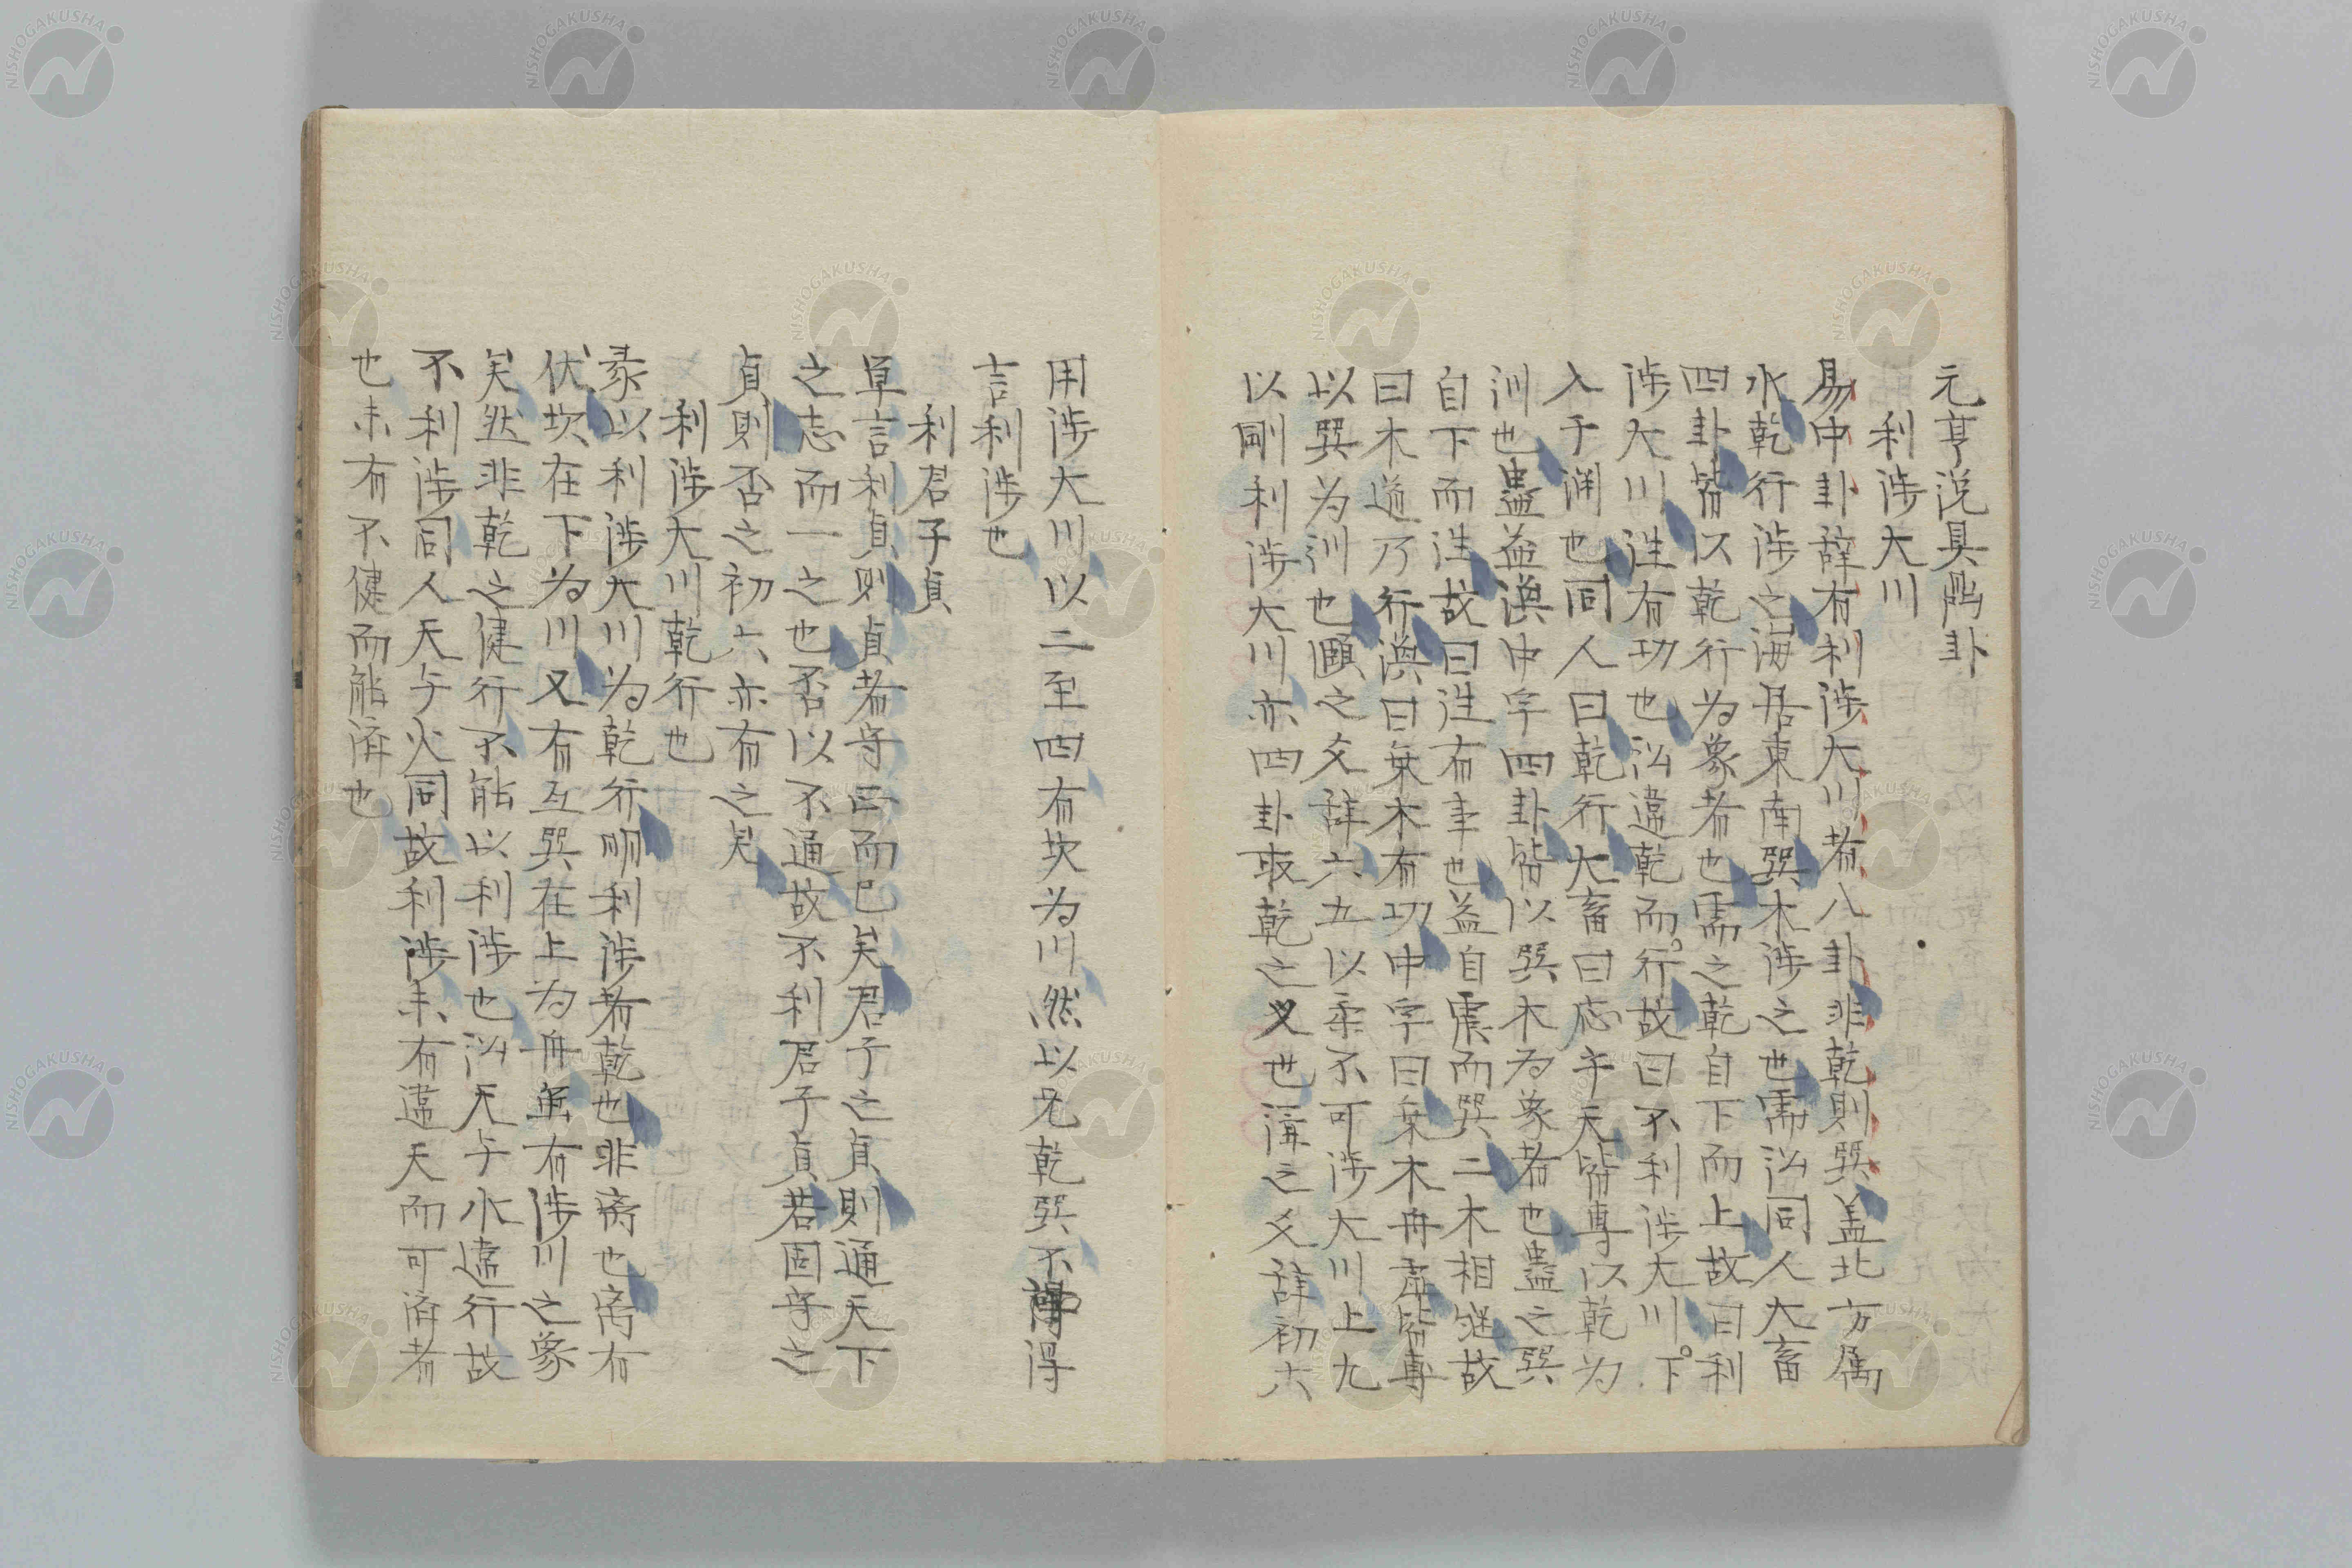 元亨説具鼎卦
利涉大川
易中卦辞有利涉大川者八卦非乾則巽盖北方属
水乾行涉之海居東南巽木涉之也需訟同人大畜
四卦皆以乾行为象者也需之乾自下而上故曰利
涉大川往有功也訟違乾而行故曰不利涉大川下
入于渊也同人曰乾行大畜曰应乎天皆專以乾为
训也蠱益渙中孚四卦皆以巽木为象者也蠱之巽
自下而往故曰往有事也益自震而巽二木相继故
曰木道乃行渙曰乗木有功中孚曰乗木舟虚皆專
以巽为训也頤之爻辞六五以柔不可涉大川上九
以剛利涉大川亦四卦取乾之义也謙之爻辞初六
用涉大川以二至四有坎为川然以无乾巽不得
言利涉也
利君子貞
单言利貞則貞者守正而已矣君子之貞則通天下
之志而一之也否以不通故不利君子貞若固守之
貞則否之初六亦有之矣
利涉大川乾行也
彖以利涉大川为乾行明利涉者乾也非离也离有
伏坎在下为川又有互巽在上为舟虽有涉川之象
矣然非乾之健行不能以利涉也訟天与水違行故
不利涉同人天与火同故利涉未有違天而可济者
也未有不健而能济也
NISHOGAKUSHA